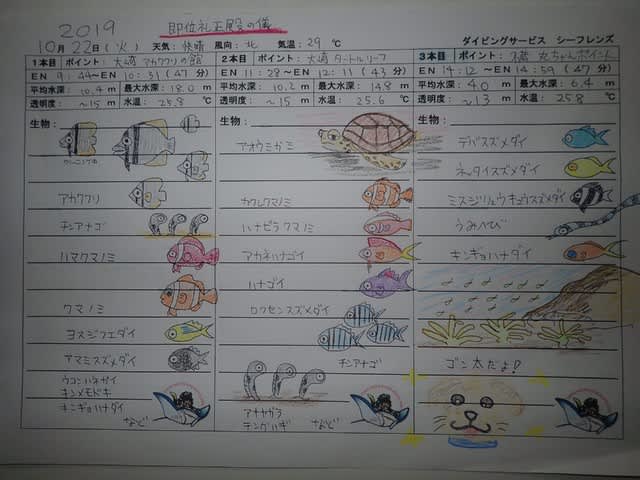 2019
即位礼正殿の儀
10月22日(火) 天気: 快晴 風向: 北 気温: 29 ℃
ダイビングサービス シーフレンズ
1本目 ポイント: 大崎 アカククリの館
EN 9:49~EN 10:31 (47 分)
平均水深: 10.4 m 最大水深: 18.0 m
透明度: ~15 m 水温: 25.8 ℃
生物:
クリーニング中
アカククリ
チンアナゴ
ハマクマノミ
クマノミ
ヨスジフエダイ
アマミスズメダイ
ウコンハネガイ
キンメモドキ
キンギョハナダイ
など
2本目 ポイント: 大崎 タートルリーフ
EN 11:28~EN 12:11 (43 分)
平均水深: 10.2 m 最大水深: 14.8 m
透明度: ~15 m 水温: 25.6 ℃
生物:
アオウミガメ
カクレクマノミ
ハナビラクマノミ
アカネハナゴイ
ハナゴイ
ロクセンスズメダイ
チンアナゴ
アヤヤガラ
テングハギ など
3本目 ポイント: 丸ちゃんポイント
EN 14:12~EN 14:59 (47 分)
平均水深: 4.0 m 最大水深: 6.4 m
透明度: ~13 m 水温: 25.8 ℃
生物:
デバスズメダイ
ネッタイスズメダイ
ミスジリュウキュウスズメダイ
うみへび
キンギョハナダイ
ゴン太だよ!